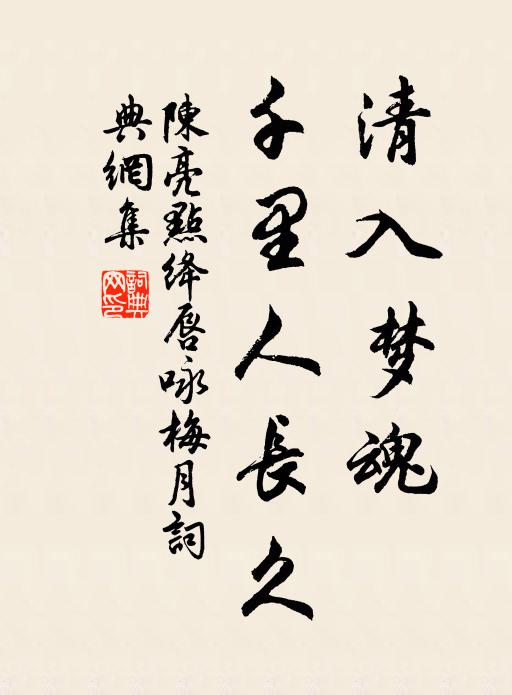 清入梦魂
千里人長久
陳亮點绛唇咏梅月詞
典網集
詞典網印